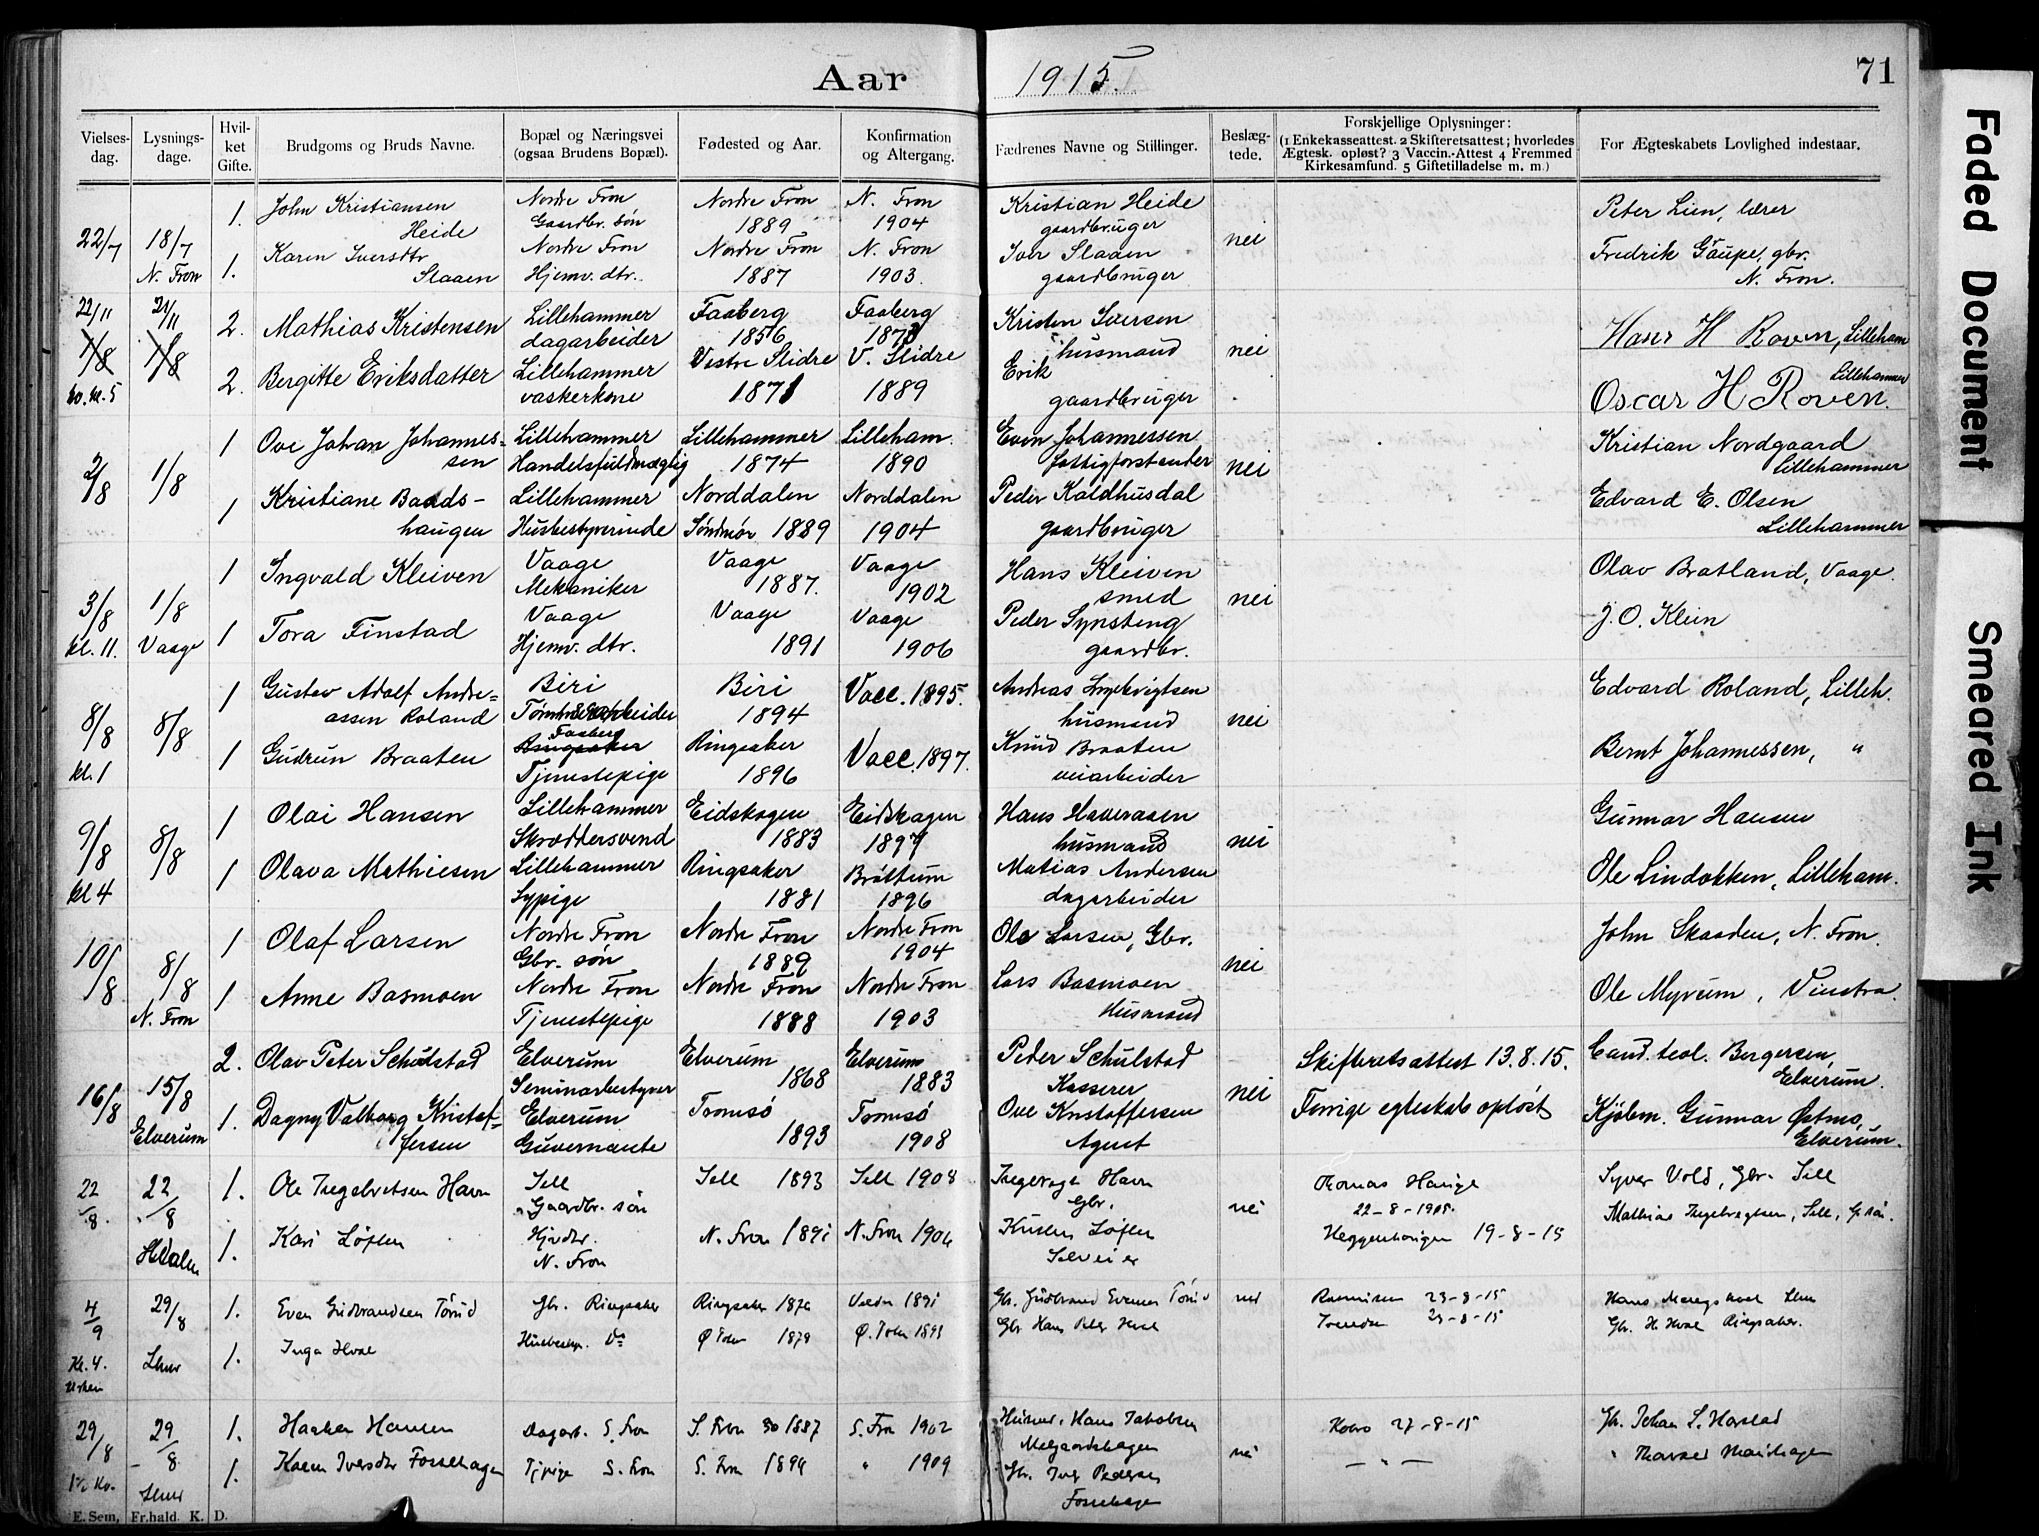 Aar 1915.
71
Faded Document
Smeared Ink
Vielses-dag.
Lysnings-dage.
Hvil-ket Gifte.
Brudgoms og Bruds Navne.
Bopæl og Næringsvei (ogsaa Brudens Bopæl).
Fødested og Aar.
Konfirmation og Altergang.
Fædrenes Navne og Stillinger.
Beslæg-tede.
Forskjellige Oplysninger:
(1 Enkekasseattest. 2 Skifteretsattest; hvorledes
Ægtesk. opløst? 3 Vaccin.-Attest 4 Fremmed
Kirkesamfund. 5 Giftetilladelse m. m.)
For Ægteskabets Lovlighed indestaar.
1. John Kristiansen Nordre Fron Nordre Fron N. Fron Kristian Heide Peter Lien, lærer
Heide Gaardbr. søn 1889 1904 gaardbruger
22/7 18/7 Karen Iversdtr Nordre Fron Nordre Fron N. Fron Iver Slaaen nei Fredrik Gaupe, gbr.
N. Fron 1. Slaaen Hjemv. dtr. 1887 1903. gaardbruger N. Fron.
22/11 21/11 2. Mathias Kristensen Lillehammer Faaberg Faaberg Kristen Iversen Hans H Roven, Lilleham
1/8 1/8 dagarbeider 1856 husmand nei
2. Bergitte Eriksdatter Lillehammer Vestre Slidre V. Slidre Erik Lillehammer
kl. 5 vaskerkone 1871 1889 gaardbruger Oscar H Roven.
1 Ove Johan Johannes- Lillehammer Lillehammer Lilleham. Even Johannessen Kristian Nordgaard
sen Handelsfuldmægtig 1874 1890 fattigforstander nei Lillehammer
2/8 1/8 1 Kristiane Baads- Lillehammer Norddalen Norddalen Peder Kaldhusdal Edvard E. Olsen
haugen Husbestyrerinde Søndmør 1889 1904 gaardbruger Lillehammer
1 Ingvald Kleiven Vaage Vaage Vaage Hans Kleiven Olav Bratland, Vaage.
Mekaniker 1887. 1902 smed nei
3/8 1/8 1 Tora Finstad Vaage Vaage Vaage Peder Synsteng J. O. Klein
kl. 11. Vaage Hjemv. dtr. 1891 1906 gaardbr.
1 Gustav Adolf Andre= Biri Biri Vacc. 1895. Andreas Edvard Roland, Lilleh.
assen Roland 1894 husmand nei
8/8 8/8 1 Gudrun Braaten Faaberg Ringsaker Vacc. 1897. Knud Braaten Bernt Johannessen, "
kl. 1 Ringsaker Tjenestepige 1896 veiarbeider
1 Olai Hansen Lillehammer Eidskogen Eidskogen Hans Haverasen Gunnar Hansen
9/8 8/8 Skræddersvend 1883 1897 husmand nei
kl 4 1 Olava Mathiesen Lillehammer Ringsaker Brøttum Matias Andersen Ole Lindokken, Lilleham.
Sypige 1881 1896 dagarbeider
1 Olaf Larsen Nordre Fron Nordre Fron Nordre Fron Ole Larsen, Gbr. John Skaaden, N. Fron.
Gbr. søn 1889 1904 nei
10/8 8/8 1 Anne Basmoen Nordre Fron Nordre Fron Nordre Fron Lars Basmoen Ole Myrum, Vinstra.
N. Fron Tjenestepige 1888 1903 Husmand
2. Olav Peter Schulstad Elverum Elverum Elverum Peder Schulstad Skifteretsattest 13.8.15. Cand. teol. Bergersen,
Seminarbestyrer 1868 1883 Kasserer nei Elverum.
16/8 15/8 1. Dagny Valborg Kristof- Elverum Tromsø Tromsø Ove Kristoffersen Forrige egteskab opløst Kjøbm. Gunnar Østmo,
Elverum fersen Guvernante 1893 1908 Agent Elverum.
22/8. 22/8 1. Ole Ingebretsen Havn Sell Sell 1893 Sell 1908 Havn Thomas Hauge Syver Vold, Gbr. Sell
Gaardbr. søn Gbr. nei 22-8-1905.
Hedalen 1. Kari Løften N. Fron 1891 N. Fron 1906 Løften Heggenhougen 19-8-15
N. Fron Selveier
4/9 29/8 1. Even Gudbrandsen Tørud Gbr. Ringsaker Ringsaker 1876 1891 Gbr. Gudbrand Evensen Tørud nei 23-8-15
Kl. 4. 1. Inga Hval Ø. Toten 1879 Gbr Hans Hval 23-8-15 Gbr. H. Hval Ringsaker.
29/8 29/8 1. Haaken Hansen Dagarb. S. Fron S. Fron 1887 S. Fron 1902 Husmd. Hans Jakobsen 27-8-15 Gbr. Johan S. Harstad
Melgaardshagen nei
1. Karen Iversdtr Fossehagen Tjpige S. Fron S. Fron 1894 " 1909 Gbr. Iver Pedersen — " —
Fossehagen
E. Sem, Fr.hald. K. D.